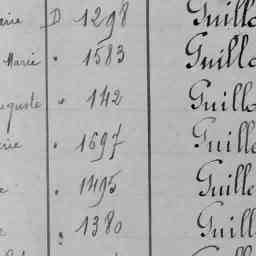 arie D 1298 Guillo
Marie " 1583 Guillo
uguste " 142 Guillo
rie " 1697 Guille
e " 1495 Guille
e " 1380 Guill